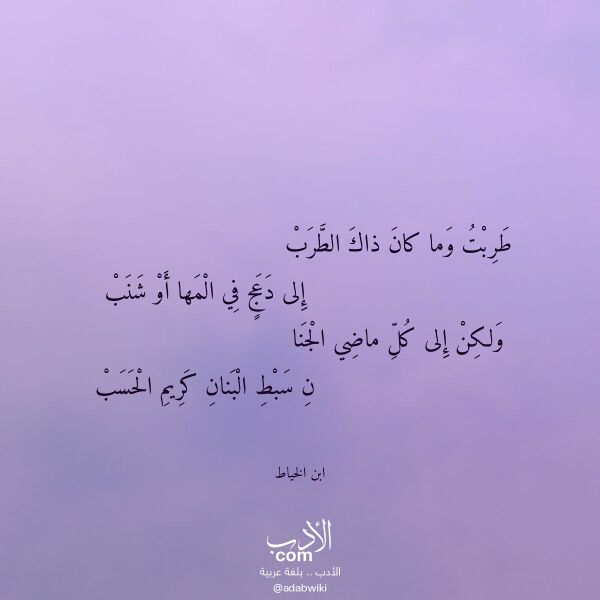 طَرِبْتُ وَما كانَ ذاكَ الطَّرَبْ
إِلى دَعَجٍ فِي الْمَها أَوْ شَنَبْ
وَلكِنْ إِلى كُلِّ ماضِي الْجَنَا
نِ سَبْطِ الْبَنانِ كَرِيمِ الْحَسَبْ
ابن الخياط
الأدب
.com
الأدب .. بلغة عربية
@adabwiki